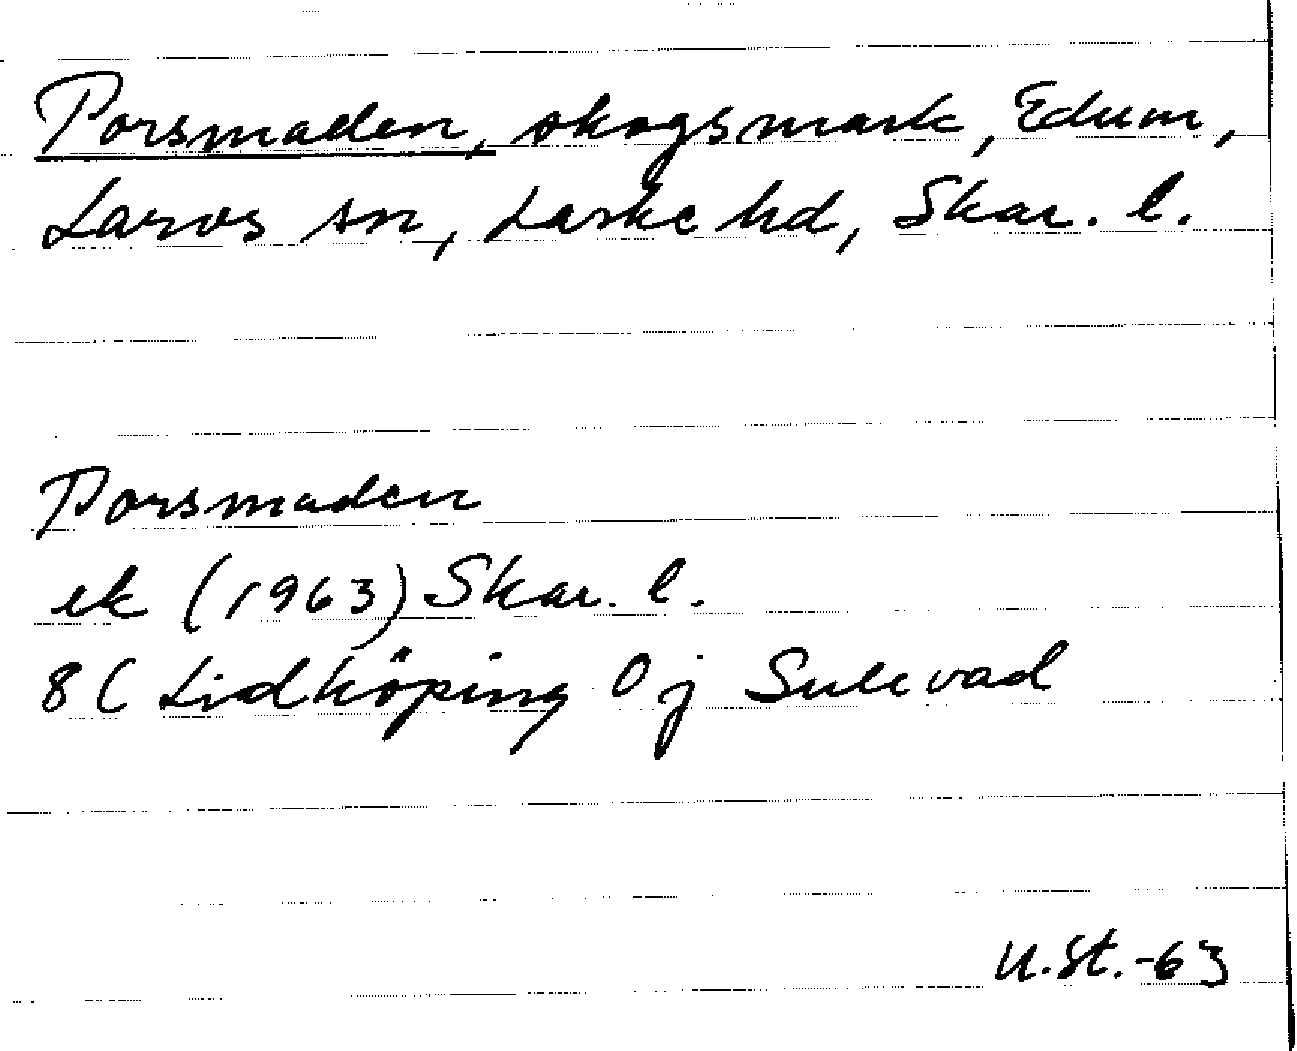 Porsmaden, skogsmark, Edum,
Larvs sn, Laske hd, Skar. l.
Porsmaden
ek (1963) Skar. l.
8C Lidköping 0j Sulevad
U.St.-63